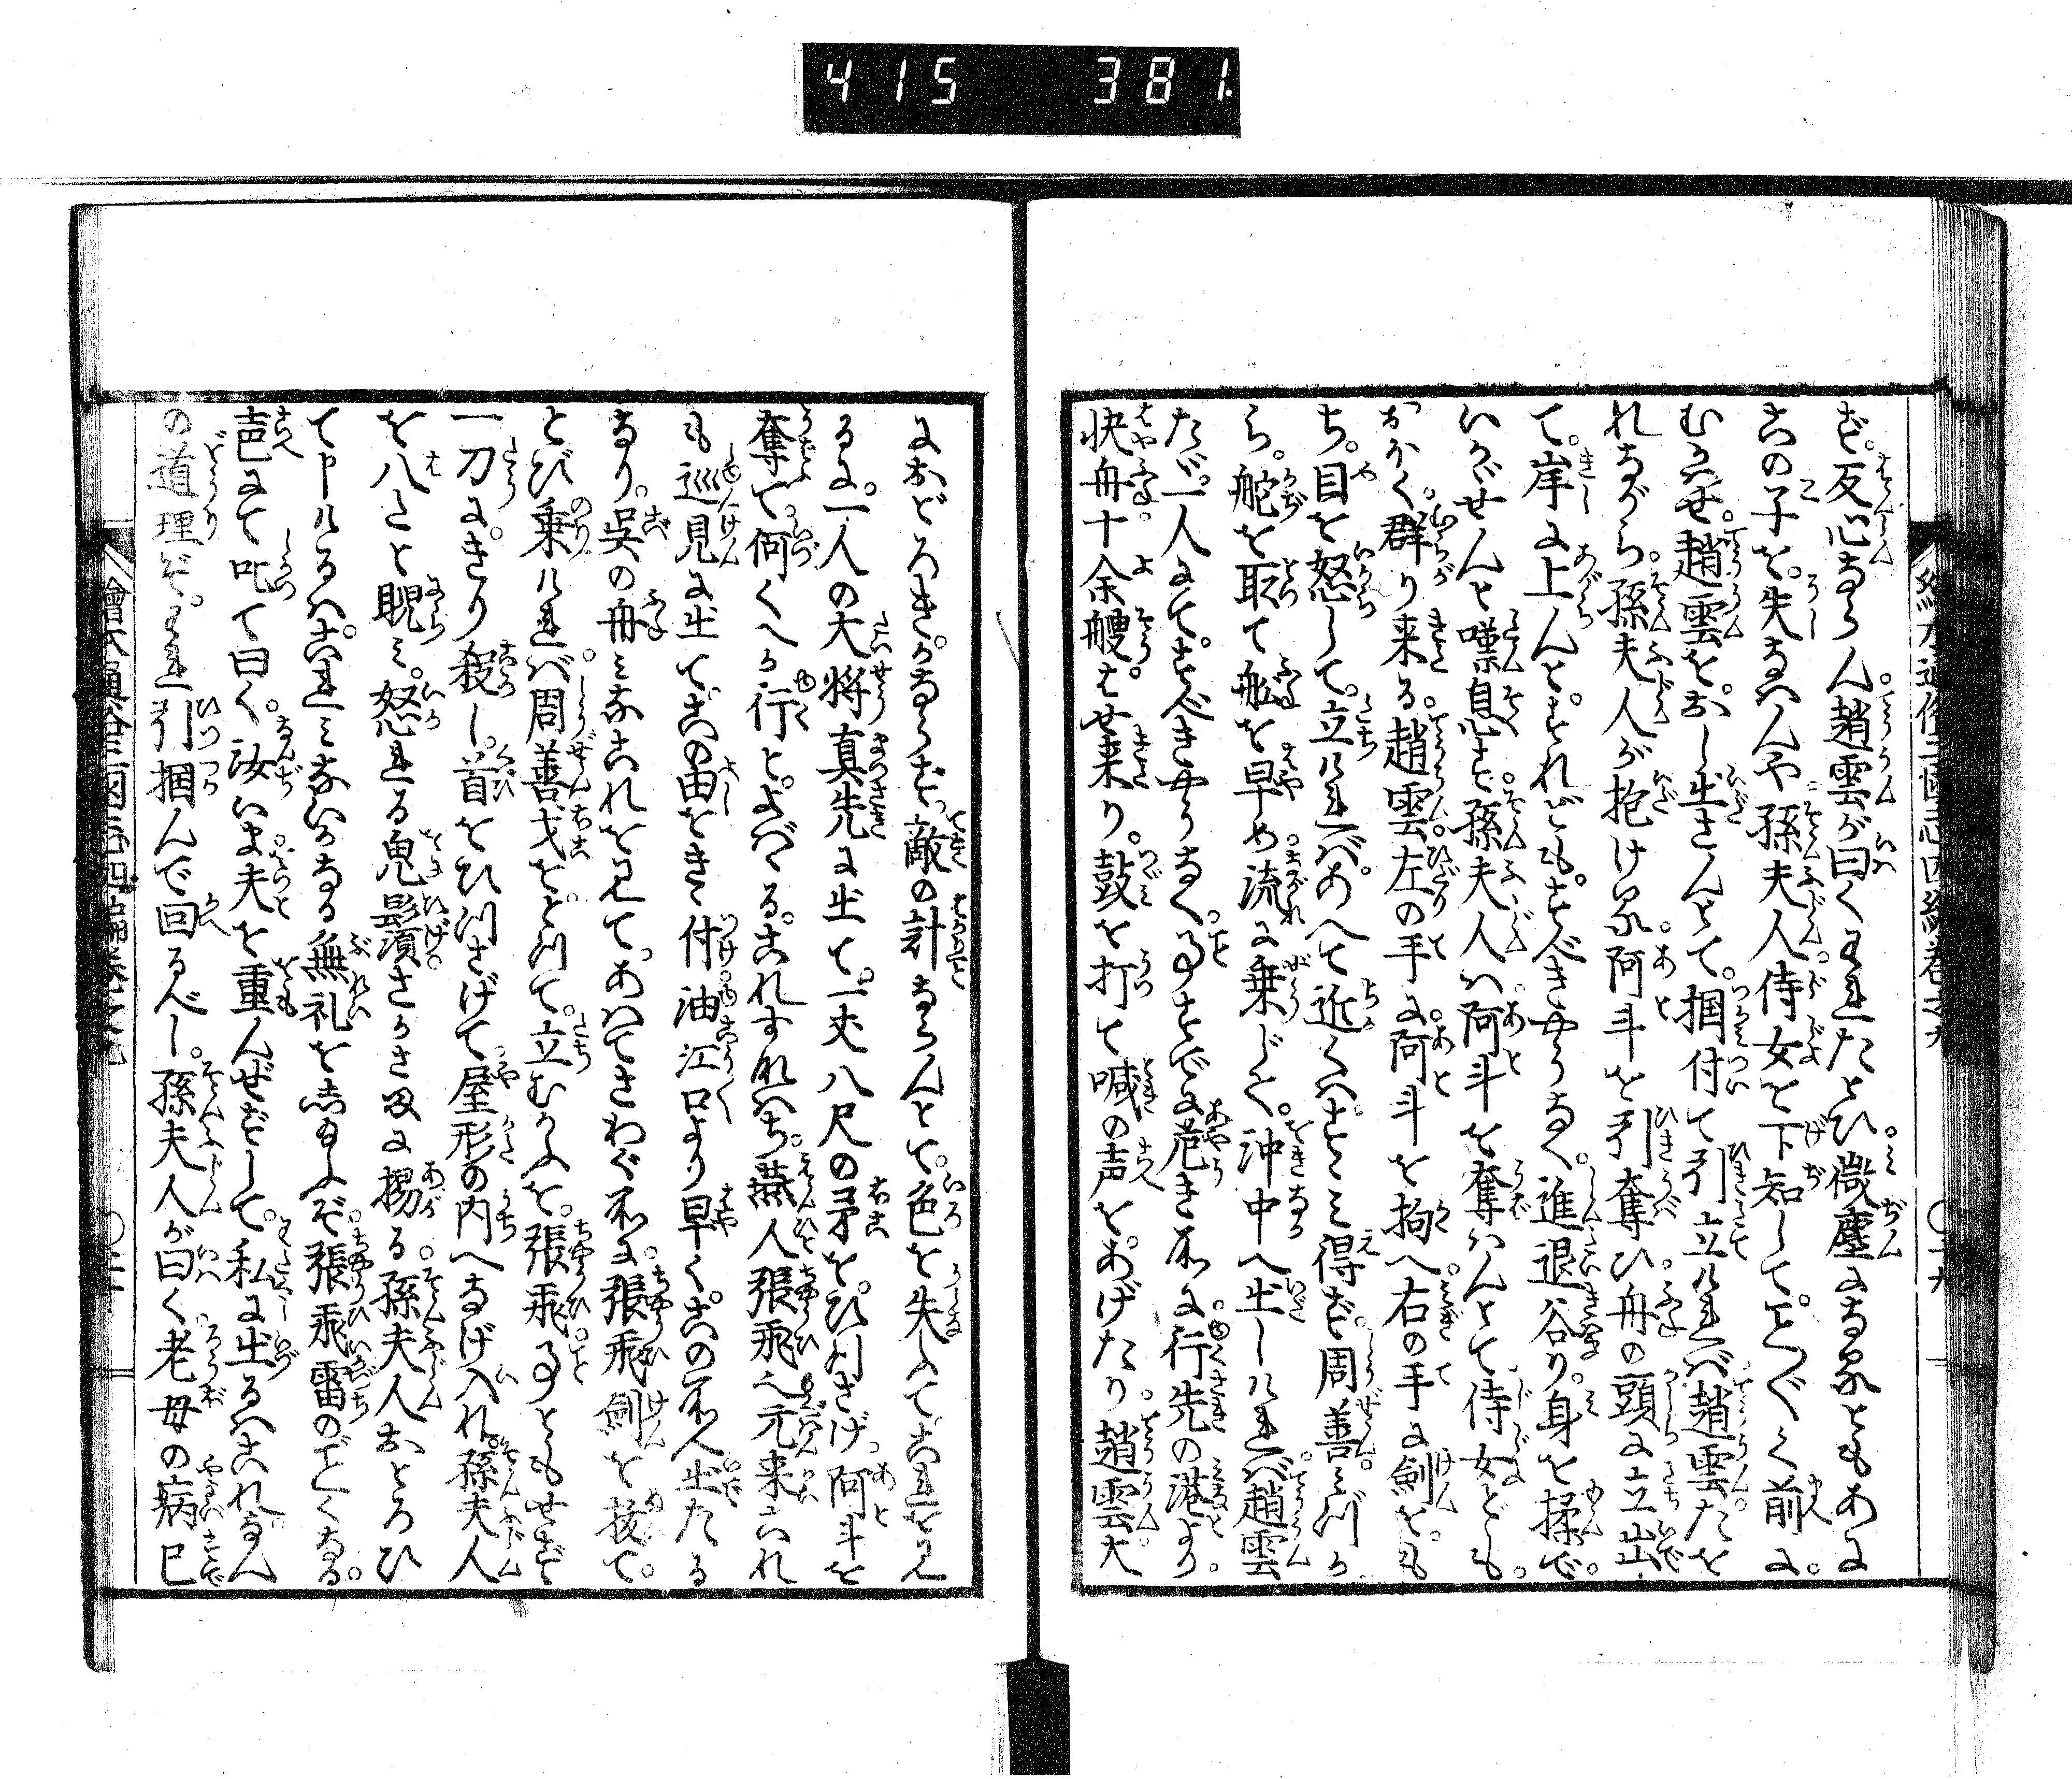 415 381
繪本通俗三國志四編巻之九 〇十九
ず。反心ならん趙雲が曰くわれたとひ微塵になるともあに
この子を。失なはんや孫夫人侍女を下知して。ことごとく前に。
むかはせ。趙雲をおし出さんとて。掴付て引立ければ趙雲たを
れながら。孫夫人が抱ける阿斗を引奪ひ舟の頭に立出
て。岸に上んと。すれども。すべきやうなく。進退谷り身を揉で。
いかゞせんと嘆息す孫夫人は阿斗を奪はんとて侍女ども。
おほく。群り来る。趙雲左の手に阿斗を拘へ右の手に剣を。も
ち。目を怒して。立ければ。あへて近くはすゝみ得ず周善みづか
ら。舵を取て船を早め流に乗じて。沖中へ出しければ趙雲
たゞ。一人にて。すべきやうなく。事すでに危き所に行先の港より。
快舟十余艘はせ来り。鼓を打て喊の声を。あげたり。趙雲大
におどろき。かならず敵の計ならんとて。色を失ふてこれを見
るに。一人の大将真先に出て。一丈八尺の矛を。ひつさげ阿斗を
奪て何くへか行と。よばゝる。これすなはち。燕人張飛也元来これ
も巡見に出てこの由をきゝ付油江口より早く。この所へ出たる
なり。呉の舟みなこれを見て。あはてさわぐ所に。張飛剣を抜て。
とび乗ければ周善戈をとつて。立むかふを。張飛事ともせず
一刀に。きり殺し。首をひつさげて屋形の内へなげ入れ。孫夫人
をハたと睨み。怒れる鬼鬚さかさまに揚る。孫夫人おとろひ
て申けるハこれみないかなる無礼をなし玉ふぞ。張飛雷のごとくなる。
声にて叱て曰く。汝いま夫を重んぜずして。私に出るハこれなん
の道理ぞ。われ引掴んで回るべし。孫夫人が曰く老母の病已
繪本通俗三國志四編巻之九 〇二十